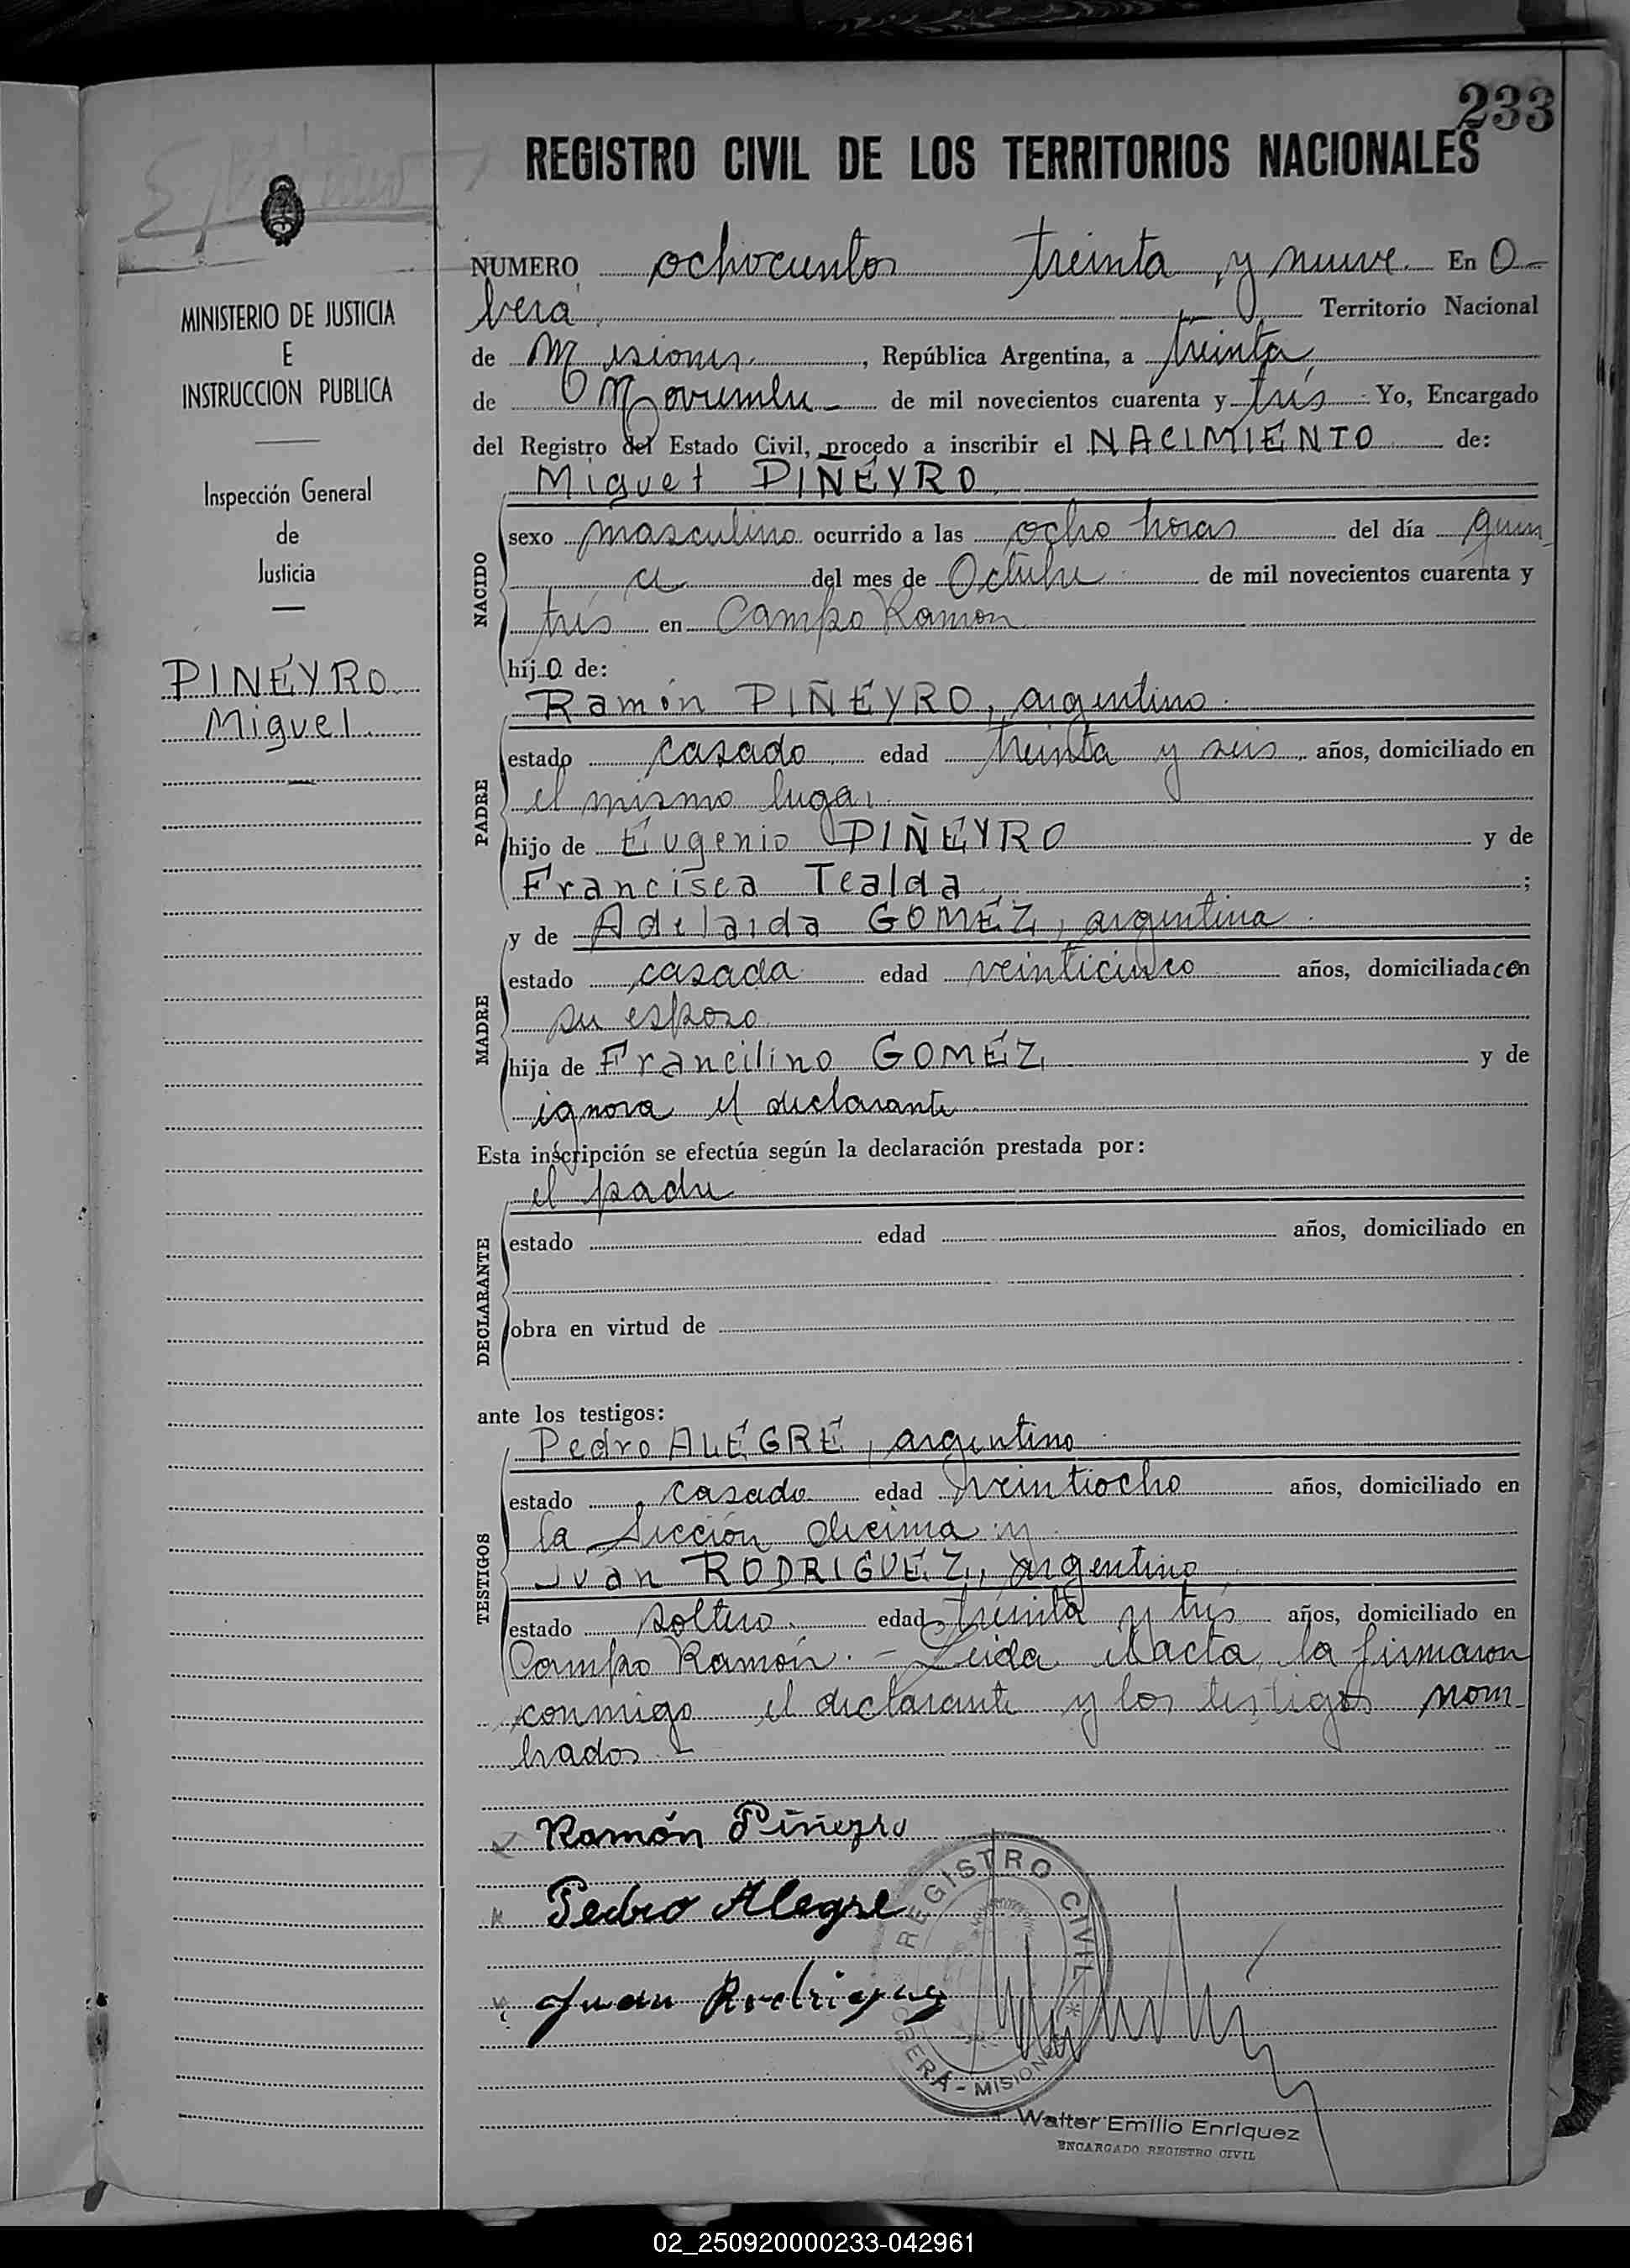 233
REGISTRO CIVIL DE LOS TERRITORIOS NACIONALES
NUMERO ochocientos treinta y nueve. En O-
bera Territorio Nacional
de Misiones, República Argentina, a treinta
de Noviembre de mil novecientos cuarenta y trés Yo, Encargado
del Registro del Estado Civil, procedo a inscribir el NACIMIENTO de:
MINISTERIO DE JUSTICIA
E
INSTRUCCION PUBLICA
Inspección General
de
Justicia
PIÑEYRO
Miguel
NACIDO
Miguel PIÑEYRO
sexo masculino ocurrido a las ocho horas del día quin
ce del mes de Octubre de mil novecientos cuarenta y
trés en Campo Ramon
hijo de:
PADRE
Ramón PIÑEYRO, argentino.
estado casado edad treinta y seis años, domiciliado en
el mismo lugar
hijo de Eugenio PIÑEYRO y de
Francisca Tealda ;
MADRE
y de Adelaida GOMEZ, argentina
estado casada edad veinticinco años, domiciliada con
su esposo
hija de Francilino GOMEZ y de
ignora el declarante
Esta inscripción se efectúa según la declaración prestada por:
DECLARANTE
el padre
estado edad años, domiciliado en
obra en virtud de
ante los testigos:
TESTIGOS
Pedro ALEGRE, argentino
estado casado edad veintiocho años, domiciliado en
la Sección decima y
Juan RODRIGUEZ, argentino
estado soltero edad treinta y trés años, domiciliado en
Campo Ramón. - Leida el acta, la firmaron
conmigo el declarante y los testigos nom
brados. -
Ramón Piñeyro
Pedro Alegre
Juan Rodriguez
REGISTRO CIVIL
OBERA - MISIONES
Walter Emilio Enriquez
ENCARGADO REGISTRO CIVIL
02_250920000233-042961